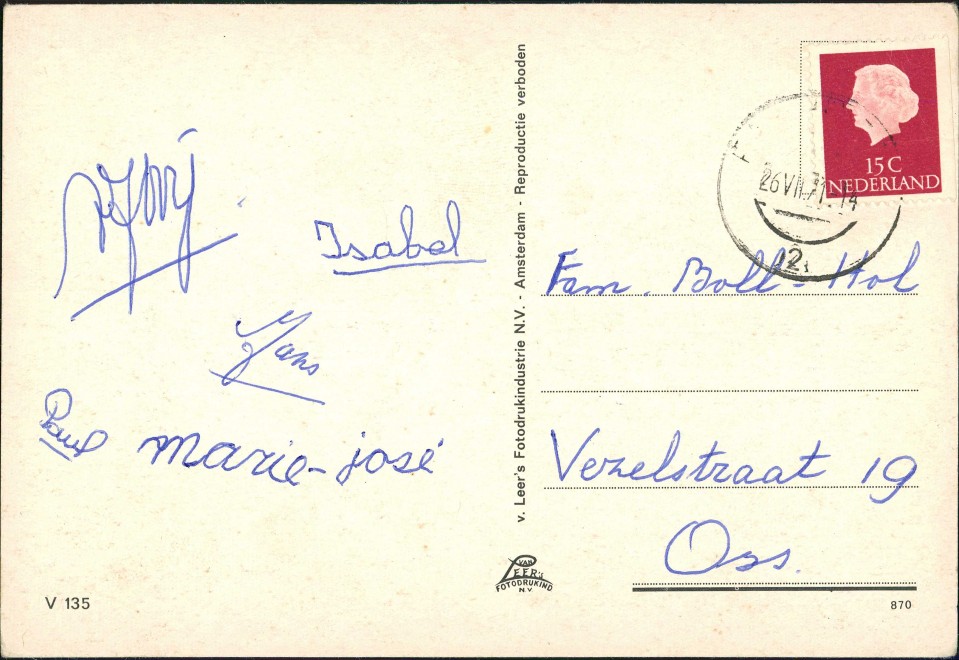 Isabel
Hans
Paul
Marie-josé
V 135
v. Leer's Fotodrukindustrie N.V. - Amsterdam - Reproductie verboden
VAN
LEER'S
FOTODRUKIND
N.V.
15 C
NEDERLAND
26 VII.71.-14
Fam. Boll-Hol
Vezelstraat 19
Oss.
870